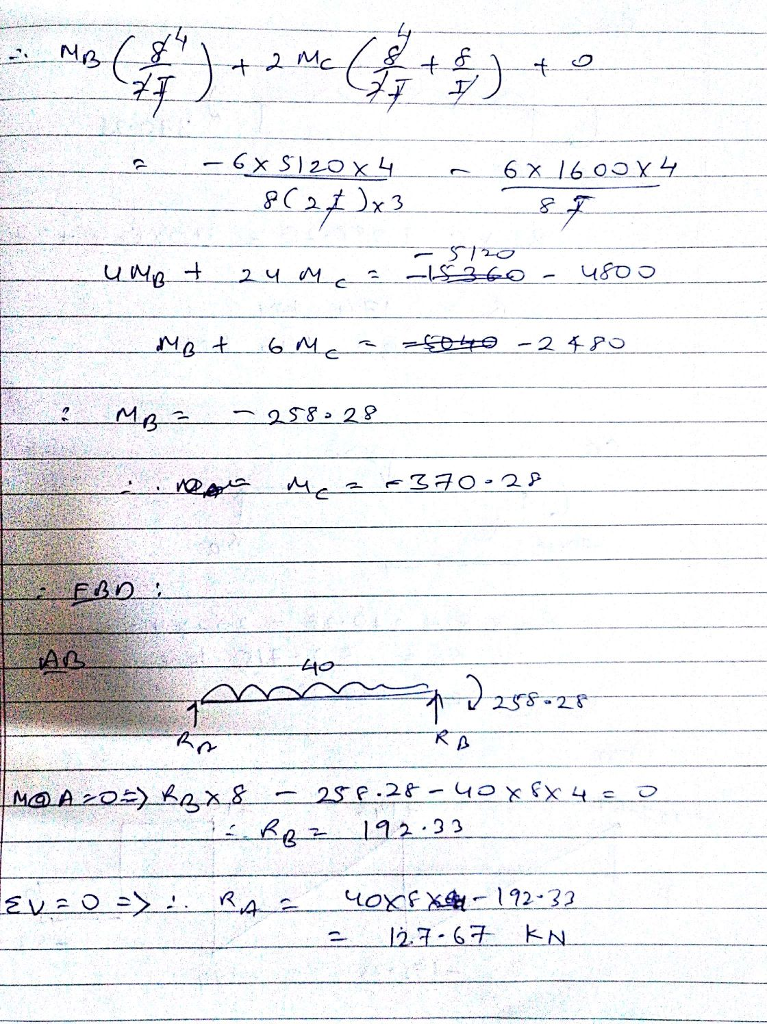 ∴ MB ( 8 4 / 2I ) + 2 Mc ( 8 4 / 2I + 8 / I ) + 0
= - 6 x 5120 x 4 / 8(2I) x 3 - 6 x 1600 x 4 / 8 I
- 5120
4MB + 24 Mc = -15360 - 4800
MB + 6 Mc = -5040 - 2480
∴ MB = - 258.28
∴ Mc = - 370.28
∴ FBD :
AB 40
258.28
RA RB
M@A=0 => RB x 8 - 258.28 - 40 x 8 x 4 = 0
∴ RB = 192.33
ΣV = 0 => ∴ RA = 40x8 - 192.33
= 127.67 KN